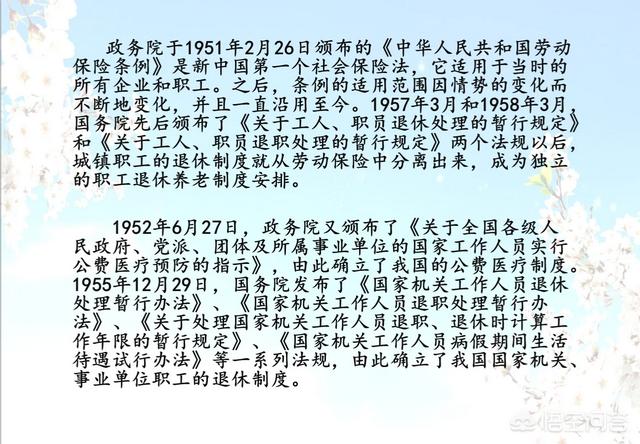 政务院于1951年2月26日颁布的《中华人民共和国劳动
保险条例》是新中国第一个社会保险法，它适用于当时的
所有企业和职工。之后，条例的适用范围因情势的变化而
不断地变化，并且一直沿用至今。1957年3月和1958年3月，
国务院先后颁布了《关于工人、职员退休处理的暂行规定》
和《关于工人、职员退职处理的暂行规定》两个法规以后，
城镇职工的退休制度就从劳动保险中分离出来，成为独立
的职工退休养老制度安排。
1952年6月27日，政务院又颁布了《关于全国各级人
民政府、党派、团体及所属事业单位的国家工作人员实行
公费医疗预防的指示》，由此确立了我国的公费医疗制度。
1955年12月29日，国务院发布了《国家机关工作人员退休
处理暂行办法》、《国家机关工作人员退职处理暂行办
法》、《关于处理国家机关工作人员退职、退休时计算工
作年限的暂行规定》、《国家机关工作人员病假期间生活
待遇试行办法》等一系列法规，由此确立了我国国家机关、
事业单位职工的退休制度。
悟空问答